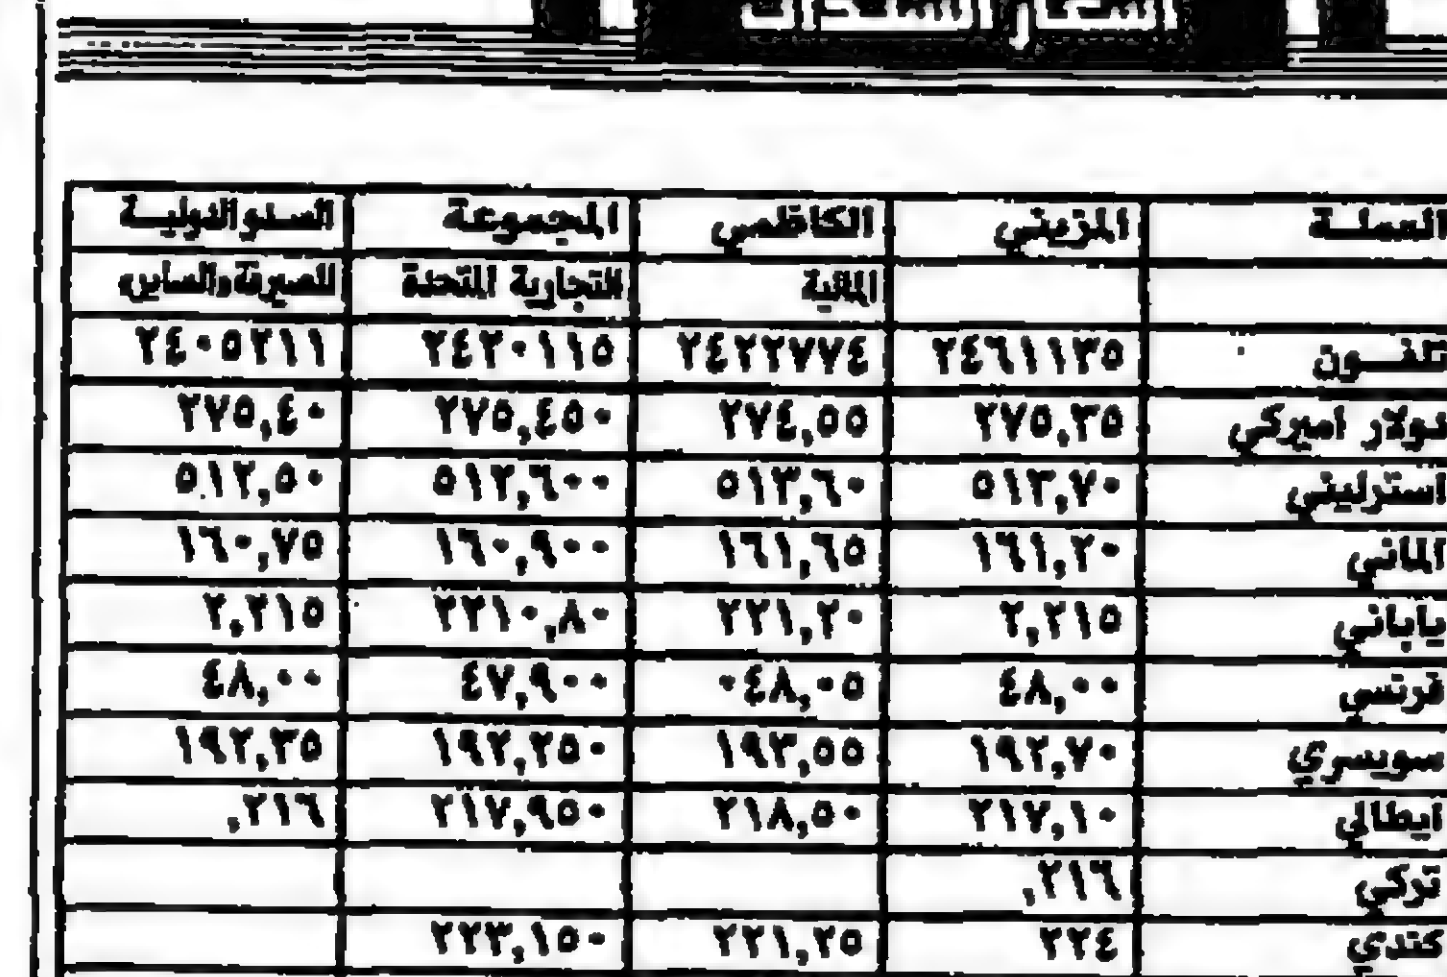 العملة المزيني الكاظمي المجموعة السنو الدولية
المالية التجارية المتحدة للصيرفة والسايره
تلفون ٢٤٦١١٣٥ ٢٤٢٢٧٧٤ ٢٤٢٠١١٥ ٢٤٠٥٢١١
دولار اميركي ٢٧٥,٣٥ ٢٧٤,٥٥ ٢٧٥,٤٥٠ ٢٧٥,٤٠
استرليني ٥١٣,٧٠ ٥١٣,٦٠ ٥١٢,٦٠٠ ٥١٢,٥٠
الماني ١٦١,٢٠ ١٦١,٦٥ ١٦٠,٩٠٠ ١٦٠,٧٥
ياباني ٢,٢١٥ ٢٢١,٢٠ ٢٢١٠,٨٠ ٢,٢١٥
فرنسي ٤٨,٠٠ ٠٤٨,٠٥ ٤٧,٩٠٠ ٤٨,٠٠
سويسري ١٩٢,٧٠ ١٩٣,٥٥ ١٩٢,٢٥٠ ١٩٢,٣٥
ايطالي ٢١٧,١٠ ٢١٨,٥٠ ٢١٧,٩٥٠ ٢١٦,
تركي ٢١٦,
كندي ٢٢٤ ٢٢١,٢٥ ٢٢٣,١٥٠